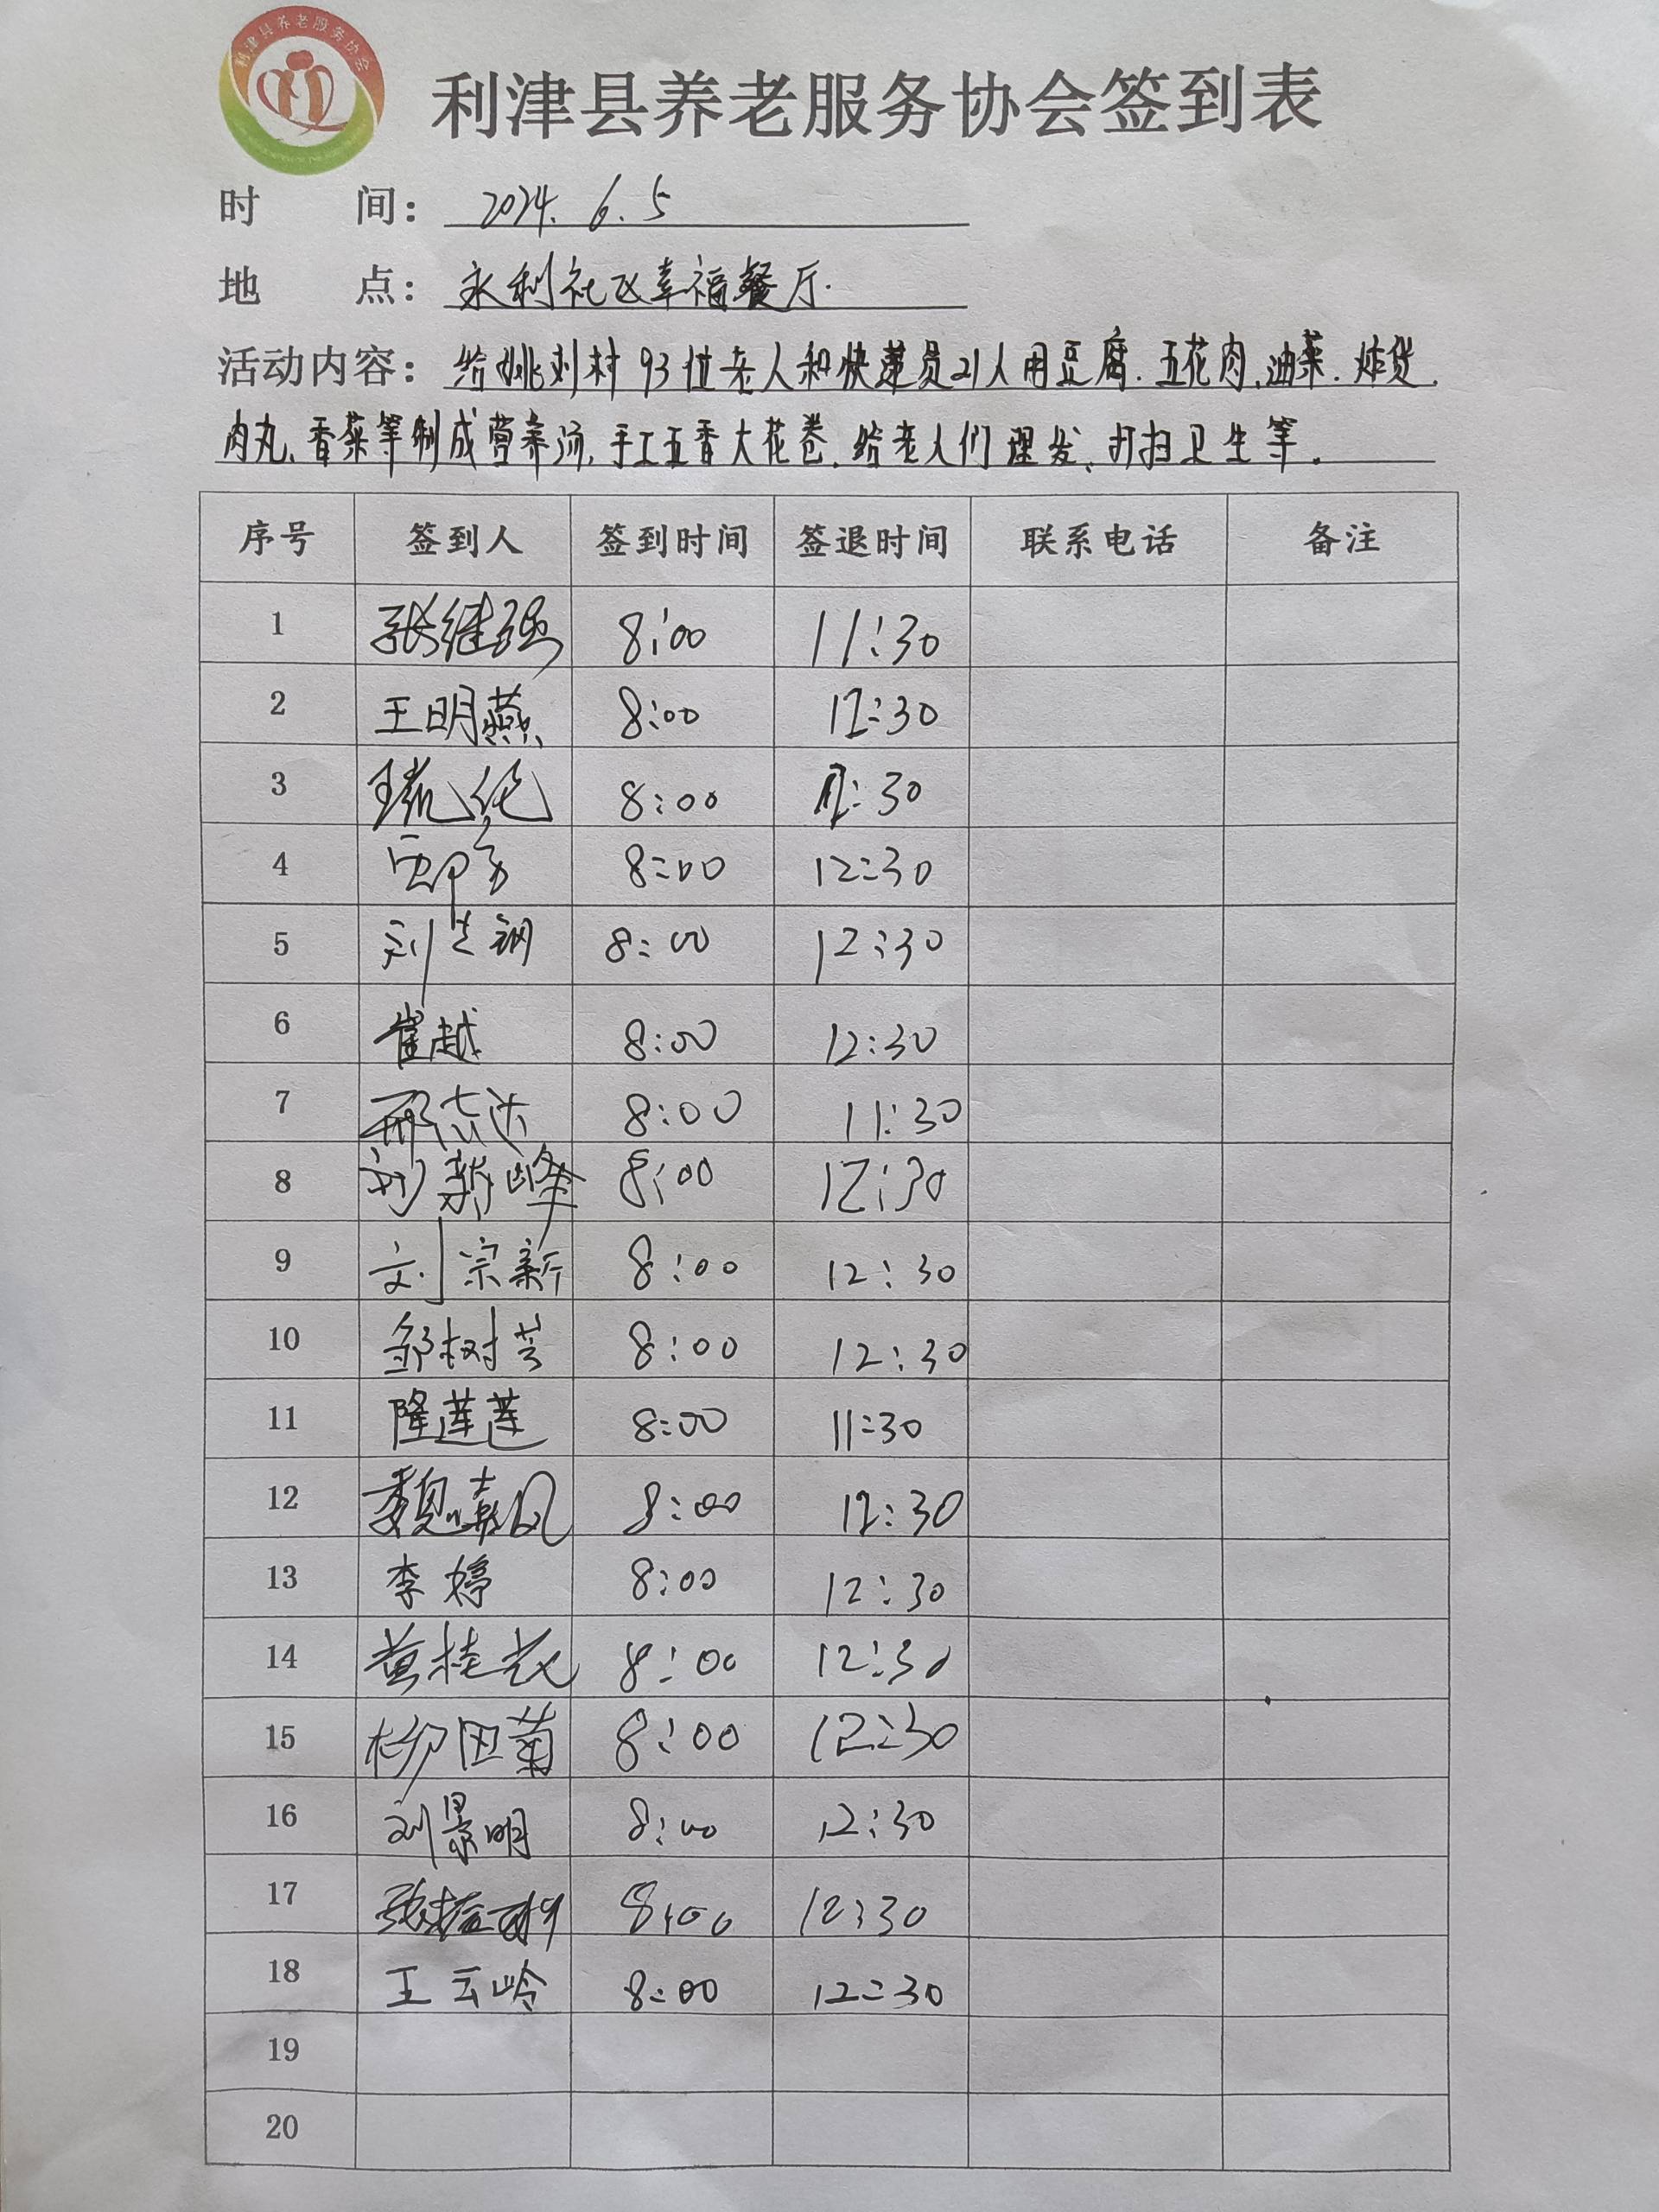 利津县养老服务协会
利津县养老服务协会签到表
时 间： 2024. 6. 5
地 点： 永利社区幸福餐厅.
活动内容： 给姚刘村93位老人和快递员21人用豆腐.五花肉.油菜.炸货.
肉丸、香菜等制成营养汤,手工五香大花卷.给老人们理发、打扫卫生等.
序号 签到人 签到时间 签退时间 联系电话 备注
1 张继强 8:00 11:30
2 王明燕 8:00 12:30
3 8:00 12:30
4 8:00 12:30
5 刘 8:00 12:30
6 崔越 8:00 12:30
7 邢志达 8:00 11:30
8 刘新峰 8:00 12:30
9 刘宗新 8:00 12:30
10 邹树芳 8:00 12:30
11 隆莲莲 8:00 11:30
12 魏 8:00 12:30
13 李婷 8:00 12:30
14 黄桂花 8:00 12:30
15 柳田菊 8:00 12:30
16 刘景明 8:00 12:30
17 张 8:00 12:30
18 王云岭 8:00 12:30
19
20